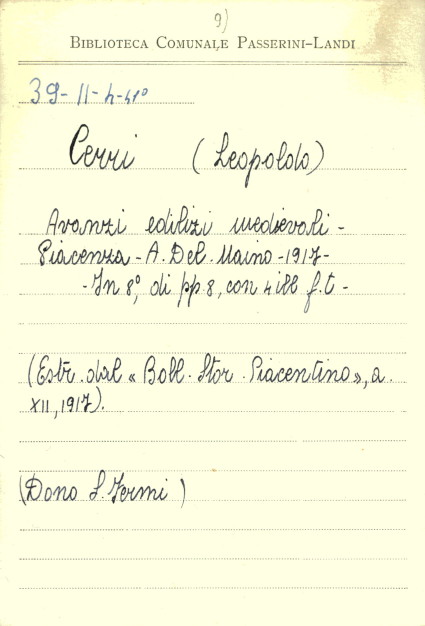 9)
BIBLIOTECA COMUNALE PASSERINI-LANDI
39-11-h-41º
Cerri (Leopoldo)
Avanzi edilizi medievali -
Piacenza - A. Del Maino - 1917 -
- In 8º, di pp. 8, con 4 ill f. t -
(Estr. dal « Boll. Stor. Piacentino », a.
XII, 1917).
(Dono S. Fermi )